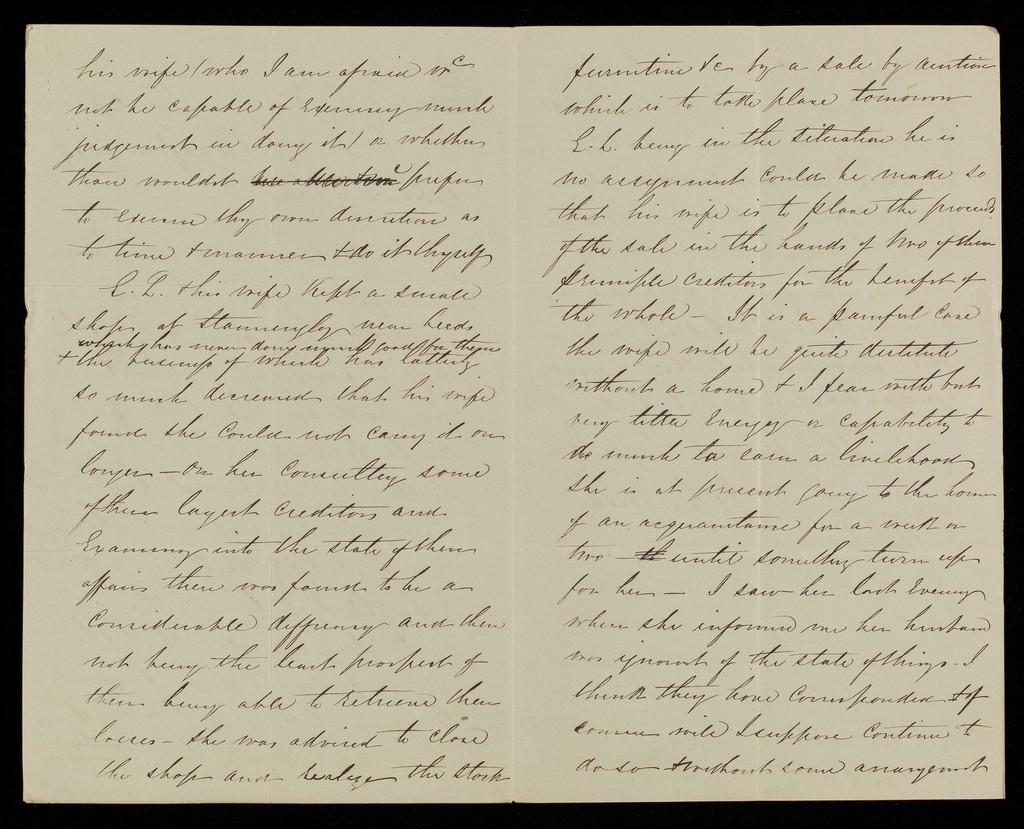 his wife (who I am afraid wd
not be capable of Exercising much
judgement in doing it) or whether
thou wouldst prefer
to exercise thy own discretion as
to time & manner & do it thyself
E. L. & his wife Kept a small
shop at Stanningley near Leeds
which has never done much good for them
& the business of which has latterly
so much decreased that his wife
found she could not carry it on
longer – On her Consulting some
of their largest Creditors and
Examining into the state of their
affairs there was found to be a
Considerable defficiency and there
not being the least prospect of
them being able to retrieve their
losses – she was advised to close
the shop and realize the stock
furniture &c by a sale by auction
which is to take place tomorrow
E. L. being in the situation he is
no assignment could be made so
that his wife is to place the proceeds
of the sale in the hands of two of their
principle creditors for the benefit of
the whole – It is a painful case
the wife will be quite destitute
without a home & I fear with but
very little Energy or capability to
do much to earn a livelihood
she is at present going to the home
of an acquaintance for a week or
two until something turn up
for her – I saw her last Evening
when she informed me her husband
was ignorant of the state of things. I
think they have Corresponded & of
course will I suppose Continue to
do so & without some arrangement